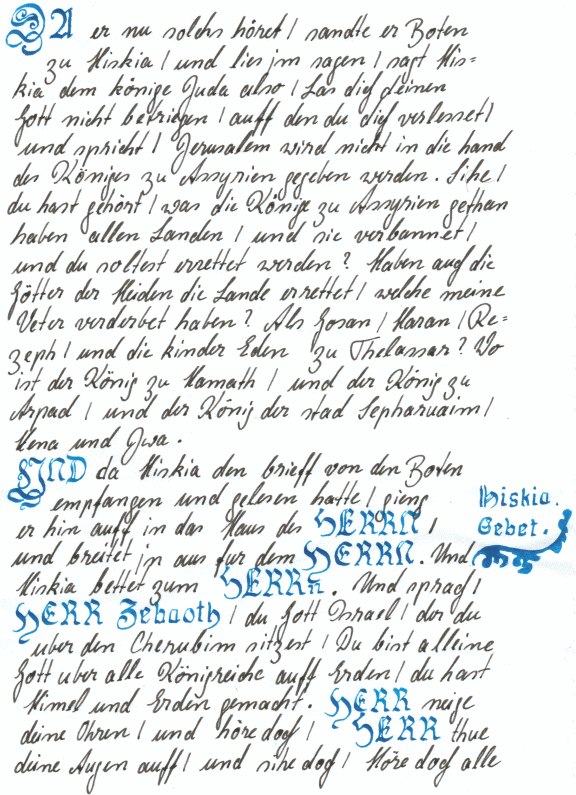 DA er nu solchs höret / sandte er Boten
zu Hiskia / und lies jm sagen / sagt His=
kia dem könige Juda also / Las dich deinen
Gott nicht betriegen / auff den du dich verlessest /
und spricht / Jerusalem wird nicht in die hand
des Königes zu Assyrien gegeben werden. Sihe /
du hast gehört / was die Könige zu Assyrien gethan
haben allen Landen / und sie verbannet /
und du soltest errettet werden? Haben auch die
Götter der Heiden die Lande errettet / welche meine
Veter verderbet haben? Als Gosan / Haran / Re=
zeph / und die kinder Eden zu Thelassar? Wo
ist der König zu Hamath / und der König zu
Arpad / und der König der stad Sepharuaim /
Hena und Jwa.
VND da Hiskia den brieff von den Boten
empfangen und gelesen hatte / gieng
er hin auff in das Haus des HERRN /
und breitet jn aus fur dem HERRN. Und
Hiskia bettet zum HERRn. Und sprach /
HERR Zebaoth / du Gott Israel / der du
uber den Cherubim sitzest / Du bist alleine
Gott uber alle Königreiche auff Erden / du hast
Himel und Erden gemacht. HERR neige
deine Ohren / und höre doch / HERR thue
deine Augen auff / und sihe doch / Höre doch alle
Hiskia.
Gebet.